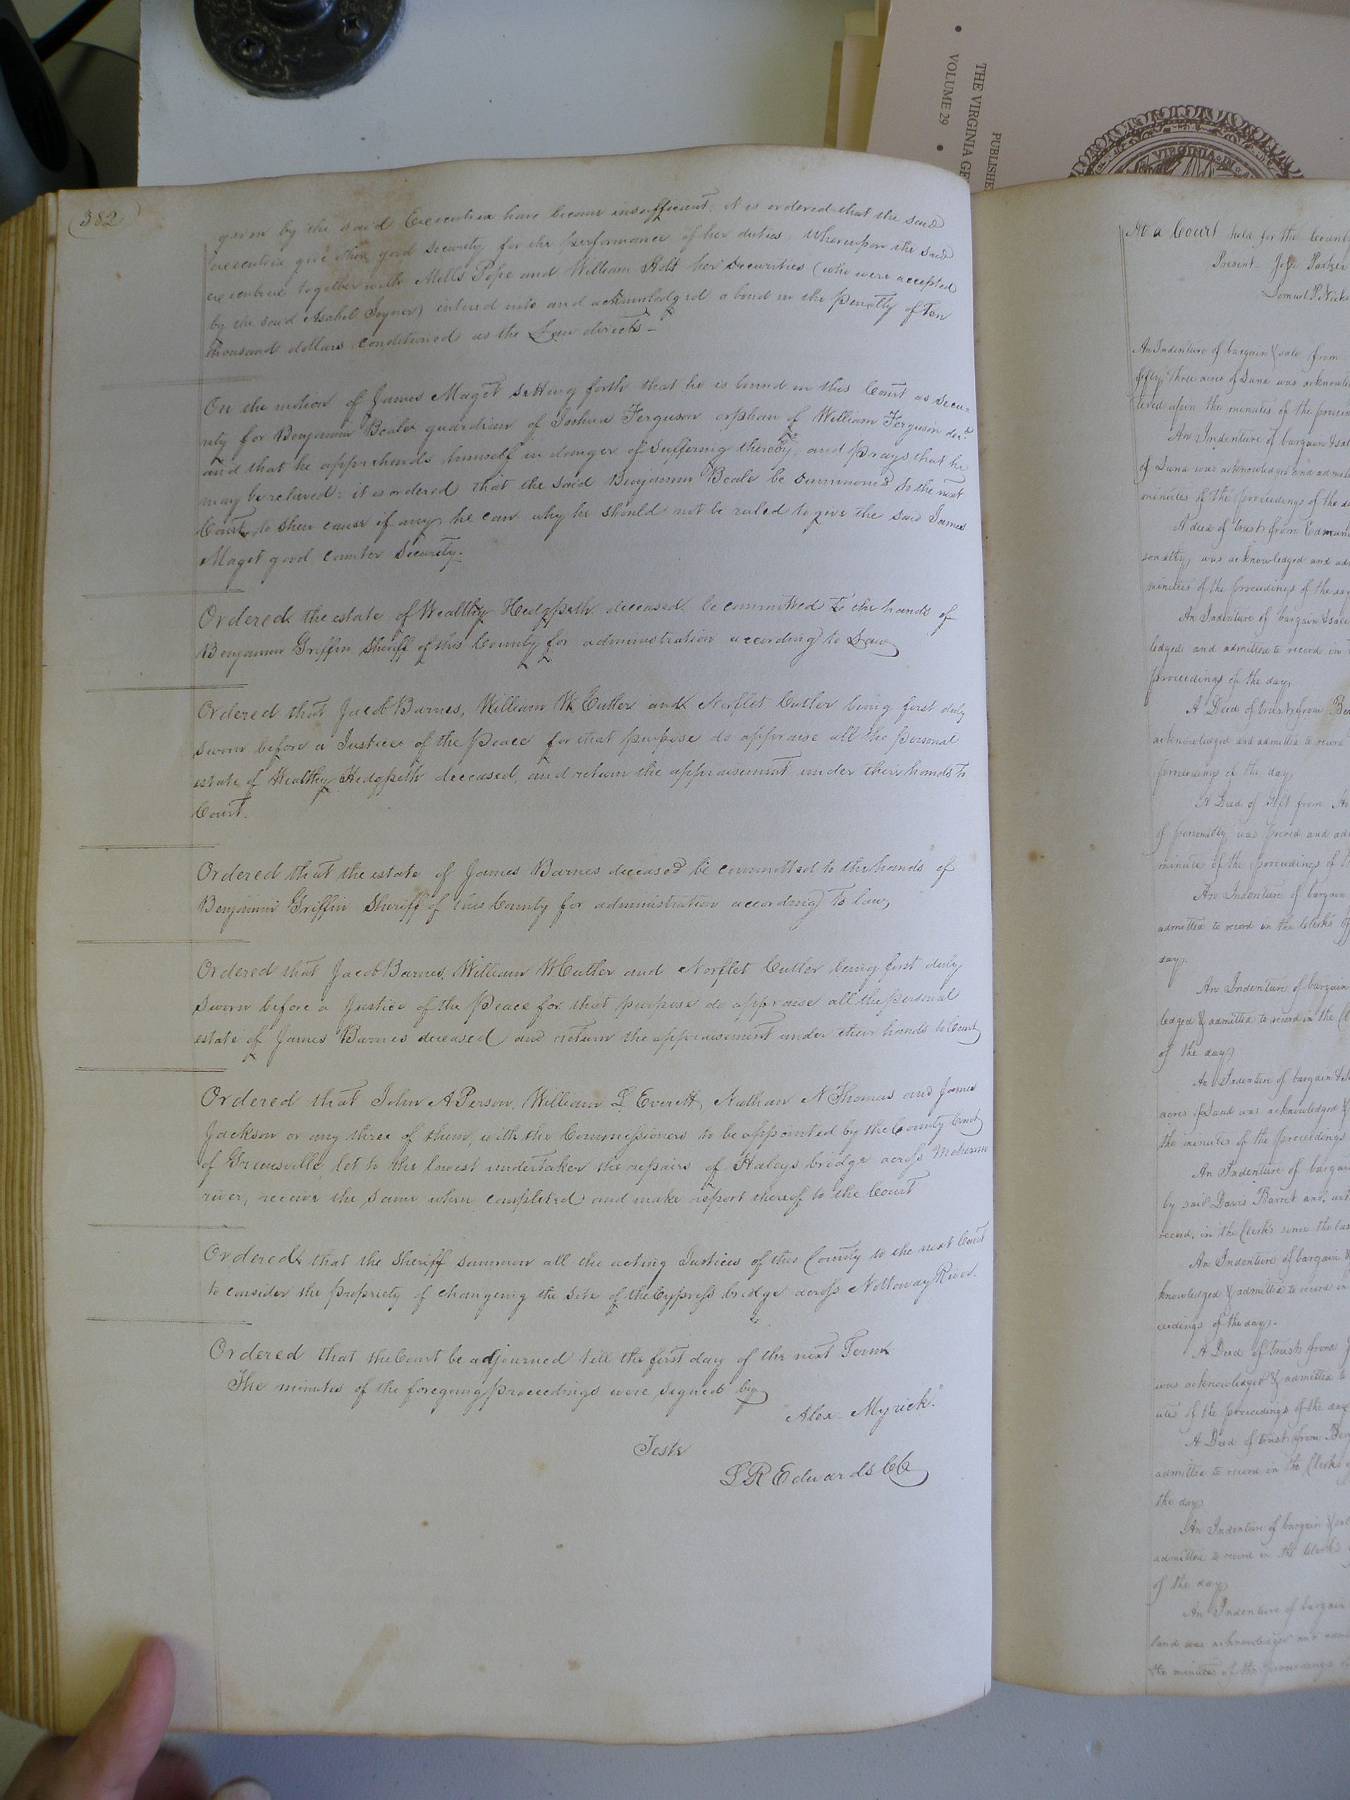 THE VIRGINIA GE
VOLUME 29
PUBLISHE
VIRGINIA
382
given by the said Executrix have become insufficient, it is ordered that the said
executrix give other good security for the performance of her duties, Whereupon the said
executrix together with Mills Pope and William Holt her securities (who were accepted
by the said Asahel Joyner) entered into and acknowledged a bond in the penalty of Ten
thousand dollars conditioned as the Law directs
On the motion of James Maget setting forth that he is bound in this Court as secu-
rity for Benjamin Beale guardian of Joshua Ferguson orphan of William Ferguson decd
and that he apprehends himself in danger of suffering thereby, and prays that he
may be relieved: it is ordered that the said Benjamin Beale be summoned to the next
Court, to shew cause if any he can why he should not be ruled to give the said James
Maget good counter security.
Ordered the estate of Wealthy Hedgpeth deceased be committed to the hands of
Benjamin Griffin Sheriff of this County for administration according to Law
Ordered that Jacob Barnes, William W Cutler and Norflet Cutler being first duly
sworn before a Justice of the Peace for that purpose do appraise all the personal
estate of Wealthy Hedgpeth deceased, and return the appraisement under their hands to
Court.
Ordered that the estate of James Barnes deceased be committed to the hands of
Benjamin Griffin Sheriff of this County for administration according to law,
Ordered that Jacob Barnes, William W Cutler and Norflet Cutler being first duly
sworn before a Justice of the Peace for that purpose do appraise all the personal
estate of James Barnes deceased and return the appraisement under their hands to Court
Ordered that John A Person, William L Everett, Nathan N Thomas and James
Jackson or any three of them, with the Commissioners to be appointed by the County Court
of Greensville let to the lowest undertaker the repairs of Haleys bridge across Meherrin
river, receive the same when completed and make report thereof to the Court
Ordered that the Sheriff summon all the acting Justices of this County to the next Court
to consider the propriety of changeing the site of the Cypress bridge across Nottoway River.
Ordered that the Court be adjourned till the first day of the next Term
The minutes of the foregoing proceedings were signed by
Alex Myrick
Teste
L R Edwards CC
At a Court held for the
Present
An Indenture of bargain & sale from
fifty three acres of Land was
upon the minutes of the
An Indenture of bargain & sale
of Land was acknowledged and
minutes of the proceedings of the
A deed of trust from Edmun
was acknowledged and ad
minutes of the proceedings of the day
An Indenture of bargain & sale
ledged and admitted to record in
proceedings of the day,
A Deed of trust from Be
acknowledged and admitted to record
proceedings of the day,
A Deed of Gift from
of personalty was proved and ad
minutes of the proceedings of
An Indenture of bargain
admitted to record in the Clerk's
day.
An Indenture of bargain
ledged & admitted to record in the
of the day
An Indenture of bargain
acres of land was acknowledged
the minutes of the proceedings
An Indenture of bargain
by said Davis Barret and
record, in the Clerk's since the
An Indenture of bargain
knowledged & admitted to record in
ceedings of the day.
A Deed of trust from
was acknowledged & admitted to
utes of the proceedings of the day
A Deed of trust from Ben
admitted to record in the Clerk's
the day
An Indenture of bargain
admitted to record in the Clerk's
of the day
An Indenture of bargain
land was acknowledged and
the minutes of the proceedings